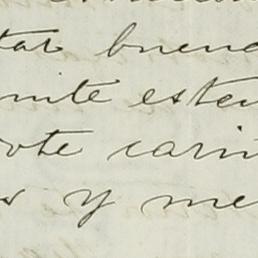 tar buena
mite esten
ote carin
s y me